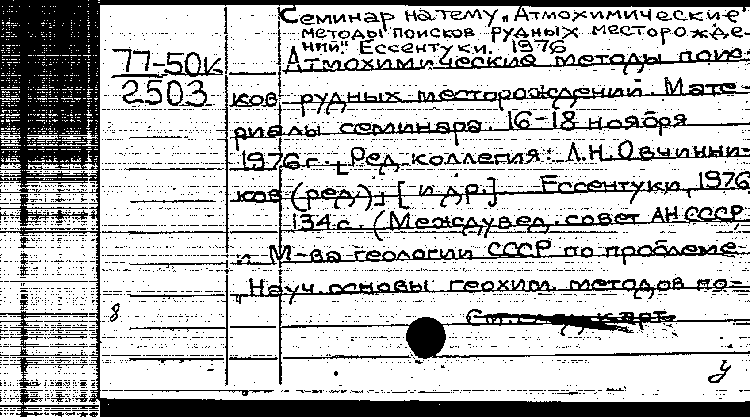 Семинар на тему „Атмохимические
методы поисков рудных месторожде-
ний." Ессентуки. 1976
77-50к
2503
Атмохимические методы поис-
ков рудных месторождений. Мате-
риалы семинара. 16-18 ноября
1976 г. [Ред. коллегия: Л.Н. Овчинни-
ков (ред.) и др.]. Ессентуки, 1976
134 с. (Междувед. совет АН СССР
и М-ва геологии СССР по проблеме
„Науч. основы геохим. методов по-
8
См. след. карт.
у